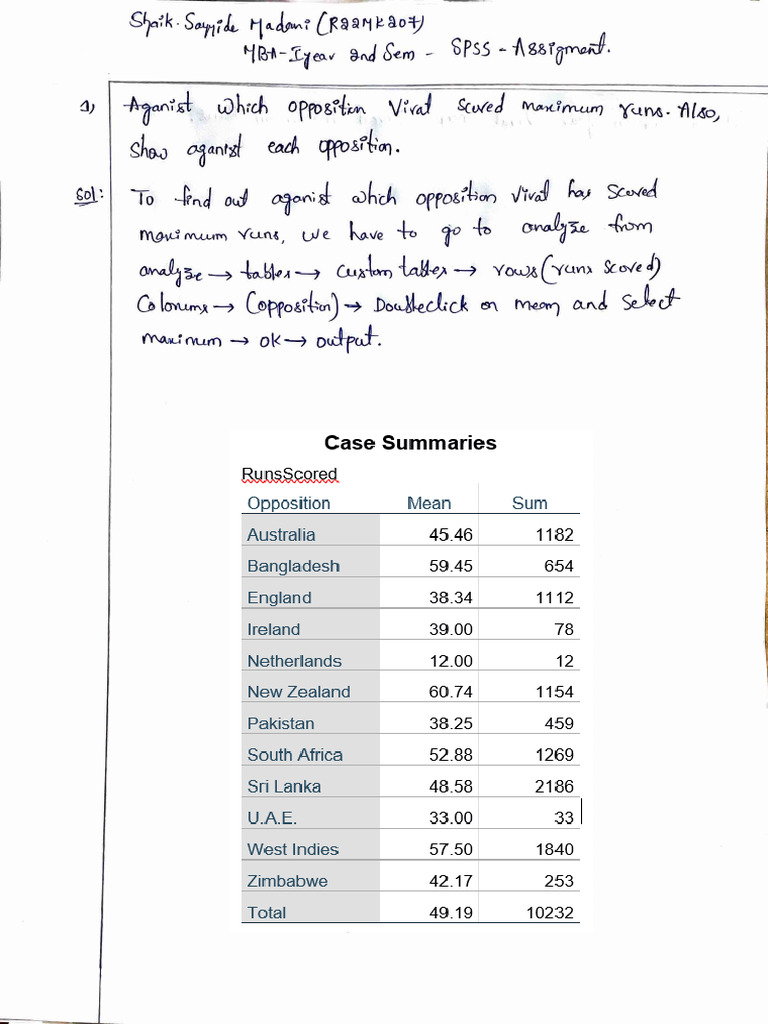 Shaik. Sayyide Madani (R22MK207)
MBA-I year 2nd Sem - SPSS - Assigment.
1) Aganist which opposition Virat Scored maximum runs. Also,
Show aganist each opposition.
Sol: To find out aganist which opposition Virat has scored
maximum runs, we have to go to analyze from
analyze → tables → custom tables → rows (runs scored)
Colonums → (opposition) → Doubleclick on mean and Select
maximum → ok → output.
Case Summaries
RunsScored
Opposition Mean Sum
Australia 45.46 1182
Bangladesh 59.45 654
England 38.34 1112
Ireland 39.00 78
Netherlands 12.00 12
New Zealand 60.74 1154
Pakistan 38.25 459
South Africa 52.88 1269
Sri Lanka 48.58 2186
U.A.E. 33.00 33
West Indies 57.50 1840
Zimbabwe 42.17 253
Total 49.19 10232